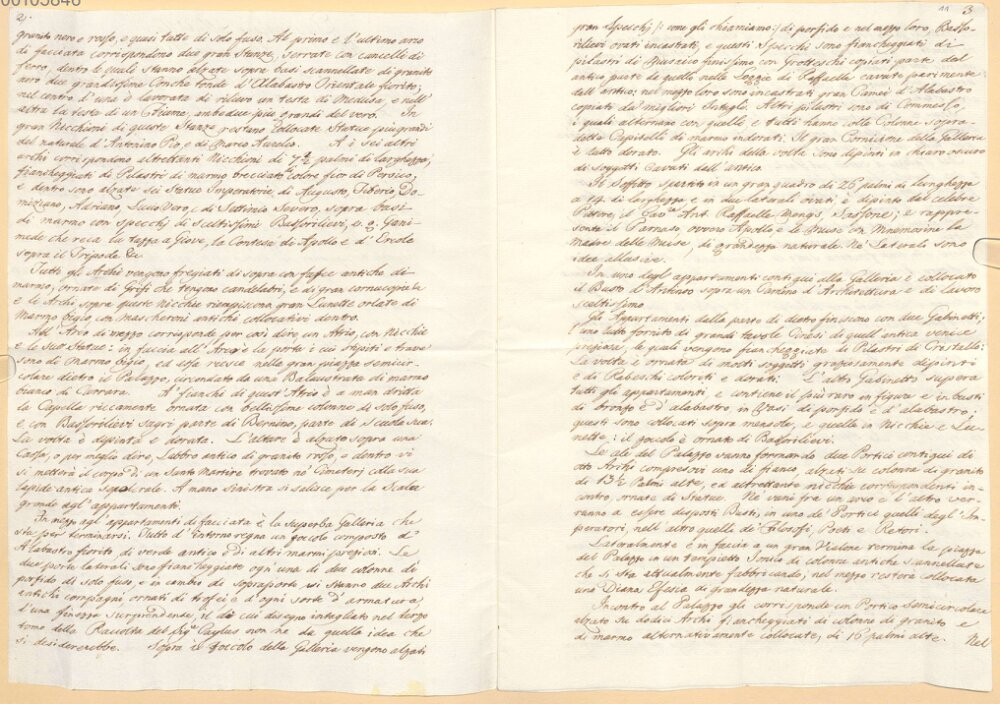 00105846
2).
granito nero e rosso, e quasi tutte di solo fuso. Al primo e l'ultimo arco
di facciata corrispondono due gran Stanze, serrate con cancelli di
ferro, dentro le quali stanno alzate sopra basi scannellate di granito
nero due grandissime Conche tonde d'Alabastro Orientale fiorito;
nel centro d'una è lavorata di rilievo un testa di Medusa, e nell'
altra la testa di un Fiume, ambedue più grandi del vero. In
gran Nicchioni di queste Stanze restano collocate Statue più grandi
del naturale d'Antonino Pio, e di Marco Aurelio. A i sei altri
archi corrispondono altrettanti Nicchioni di 7½ palmi di larghezza,
francheggiati di Pilastri di marmo brecciato colore fior di Persico,
e dentro sono alzate sei Statue Imperatorie di Augusto, Tiberio, Do-
miziano, Adriano, Lucio Vero, e di Settimio Severo, sopra basi
di marmo con specchi di sceltissimi Bassirilievi, e.g. Gani-
mede che reca la tazza a Giove, la Contesa di Apollo e d'Ercole
sopra il Tripode &c.
Tutti gli Archi vengono fregiati di sopra con fasce antiche di
marmo, ornate di Grifi che tengono candelabri, e di gran cornucopie la
e le Archi sopra queste nicchie riempiscono gran Lunette orlate di
Marmo bigio, con mascheroni antichi collocativi dentro.
All'Arco di mezzo corrisponde per così dire, un Atrio, con Nicchie
e le sue Statue: in faccia all'Arco è la porta i cui stipiti e trave
sono di Marmo bigio, ed essa riesce nella gran piazza semicir-
colare dietro il Palazzo, circondata da una Balaustrata di marmo
bianco di Carrara. A' fianchi di quest'Atrio è a man dritta
la Capella riccamente ornata con bellissime colonne di solo fuso,
e con Bassirilievi sagri parte di Bernino, parte di scuola sua.
La volta è dipinta e dorata. L'altare è alzato sopra una
Cassa, o per meglio dire, Labbro antico di granito rosso, e dentro vi
si metterà il corpo di un Santo Martire trovato ne' Cimeterj colla sua
lapide antica sepolcrale. A mano sinistra si salisce per la Scala
grande agl'appartamenti.
In mezzo agl'appartamenti di facciata è la superba Galleria che
sta per terminarsi. Tutto d'intorno regna un zoccolo composto d'
Alabastro fiorito, di verde antico e di altri marmi preziosi. Le
due porte laterali sono francheggiate ogn'una di due colonne di
porfido di solo fuso, e in cambio de Sopraporte vi stanno due Archi
antichi compagni ornati di trofei e d'ogni sorte d'armatura
d'una finezza surprendente, il di cui disegno intagliato nel terzo
tomo della Raccolta del Sigr. Caylus non ne dà quella idea che
si desidererebbe. Sopra il zoccolo della Galleria vengono alzati
11 3
gran Specchi (: come gli chiamiamo:) di porfido e nel mezzo loro, Basso-
rilievi orati incastrati, e questi Specchi sono francheggiati di
pilastri di Musaico finissimo con Grotteschi copiati parte dal
antico parte da quelle nelle Loggie di Raffaelle cavate parimente
dell'antico: nel mezzo loro sono incastrati gran Camei d'Alabastro
copiati da migliori Intagli. Altri pilastri sono di Commesso,
i quali alternano con quelle e tutti hanno colle Colonne sopra-
dette Capitelli di marmo indorati. Il gran Cornicione della Galleria
è tutto dorato. Gli archi della volta sono dipinti in chiaro oscuro
di soggetti cavati dall'antico.
Il Soffitto spartito in un gran quadro di 26 palmi di lunghezza
a 14 di larghezza, e in due laterali ovati è dipinto dal celebre
Pittore, il Cav. Ant. Raffaelle Mengs, Sassone; e rappre-
senta il Parnaso, ovvero Apollo e le Muse con Mnemosine la
Madre delle Muse, di grandezza naturale. Ne' Laterali sono
idee allusive.
In uno degl'appartamenti contigui alla Galleria è collocato
il Busto d'Antinoo sopra un Camino d'Architettura e di lavoro
sceltissimo.
Gli Appartamenti dalla parte di dietro finiscono con due Gabinetti;
uno tutto fornito di grandi tavole Cinesi di quell'antica vernice
preziosa, le quali vengono fiancheggiate di Pilastri di Cristalli:
La volta è ornata di molti soggetti graziosamente dipinti
e di Rabeschi coloriti e dorati. L'altro Gabinetto supera
tutti gli appartamenti, e contiene il più raro in figure e in busti
di bronzo e d'alabastro in Vasi di porfido e d'alabastro;
questi sono collocati sopra mensole, e quelle in Nicchie e Lu-
nette: il zoccolo è ornato di Bassirilievi.
Le ale del Palazzo vanno formando due Portici contigui di
otto Archi compresovi uno di fianco, alzati su colonne di granito
di 13½ Palmi alte, ed altrettante nicchie corrispondenti in-
contro, ornate di Statue. Ne' vani fra un arco e l'altro ver-
ranno a essere disposti Busti, in uno de' Portici quelli degl'Im-
peratori, nell'altro quelle di Filosofi, Poeti e Retori.
Lateralmente e in faccia a un gran Vialone termina la piazza
del Palazzo in un tempietto Ionico di colonne antiche scannellate
che si sta attualmente fabbricando; nel mezzo resterà collocata
una Diana Efesca di grandezza naturale.
Incontro al Palazzo gli corrisponde un Portico semicircolare
alzato su dodici Archi francheggiati di colonne di granito e
di marmo alternativamente collocate, di 16 palmi alte. Nel